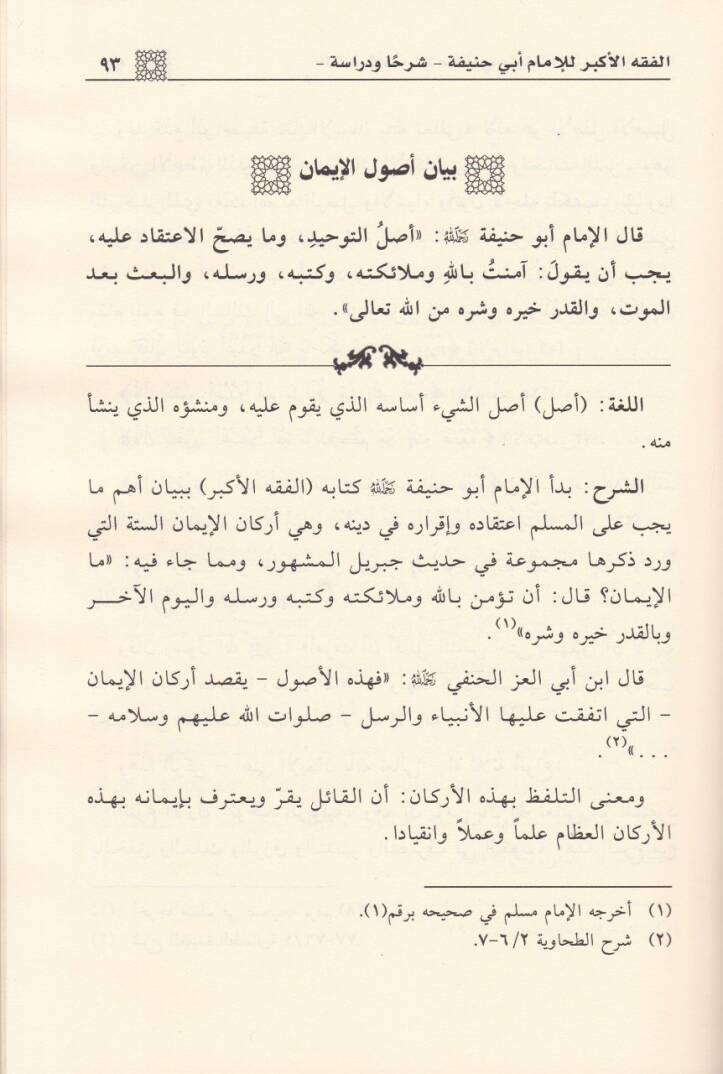 الفقه الأكبر للإمام أبي حنيفة - شرحًا ودراسة - ٩٣
بيان أصول الإيمان
قال الإمام أبو حنيفة ﵀: «أصلُ التوحيدِ، وما يصحّ الاعتقاد عليه،
يجب أن يقولَ: آمنتُ باللهِ وملائكته، وكتبه، ورسله، والبعث بعد
الموت، والقدر خيره وشره من الله تعالى».
اللغة: (أصل) أصل الشيء أساسه الذي يقوم عليه، ومنشؤه الذي ينشأ
منه.
الشرح: بدأ الإمام أبو حنيفة ﵀ كتابه (الفقه الأكبر) ببيان أهم ما
يجب على المسلم اعتقاده وإقراره في دينه، وهي أركان الإيمان الستة التي
ورد ذكرها مجموعة في حديث جبريل المشهور، ومما جاء فيه: «ما
الإيمان؟ قال: أن تؤمن بالله وملائكته وكتبه ورسله واليوم الآخر
وبالقدر خيره وشره»(١).
قال ابن أبي العز الحنفي ﵀: «فهذه الأصول - يقصد أركان الإيمان
- التي اتفقت عليها الأنبياء والرسل - صلوات الله عليهم وسلامه -
...»(٢).
ومعنى التلفظ بهذه الأركان: أن القائل يقرّ ويعترف بإيمانه بهذه
الأركان العظام علماً وعملاً وانقيادا.
(١) أخرجه الإمام مسلم في صحيحه برقم(١).
(٢) شرح الطحاوية ٦/٢-٧.